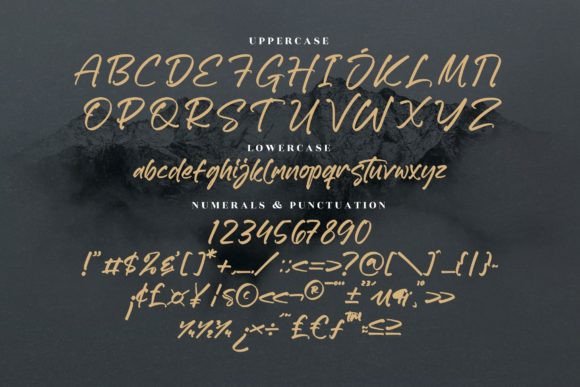 UPPERCASE
ABCDEFGHIJKLMN
OPQRSTUVWXYZ
LOWERCASE
abcdefghijklmnopqrstuvwxyz
NUMERALS & PUNCTUATION
1234567890
!"#$%&'[]*+,-./:;<=>?@[\]^_{|}~
¡¢£¤¥¦§©«¬®¯°±²³´µ¶·¸¹»
¼½¾¿×÷ˆ˜£€ƒ™≈≤≥